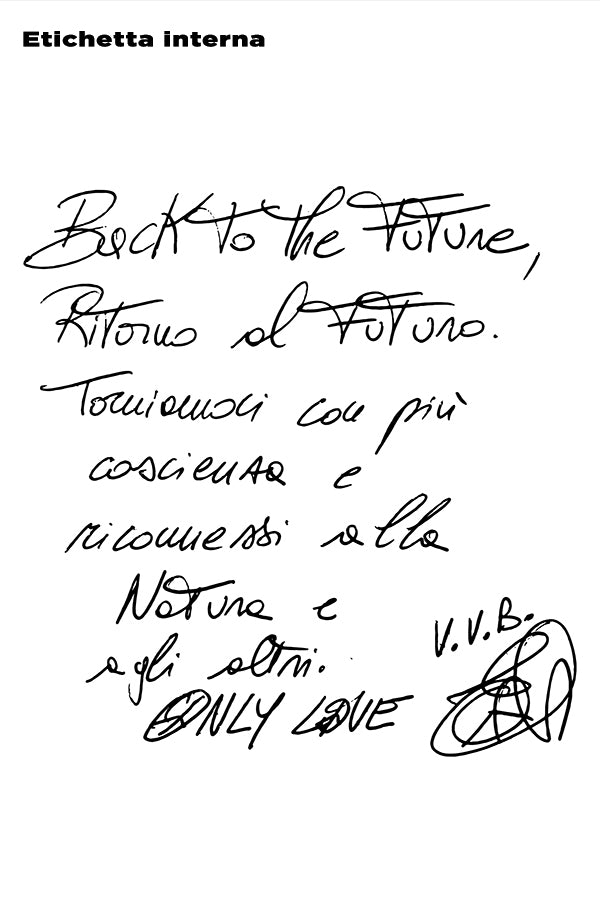 Etichetta interna
Back to the Future,
Ritorno al Futuro.
Torniamoci con più
coscienza e
riconnessi alla
Natura e
agli altri.
V.V.B.
ONLY LOVE